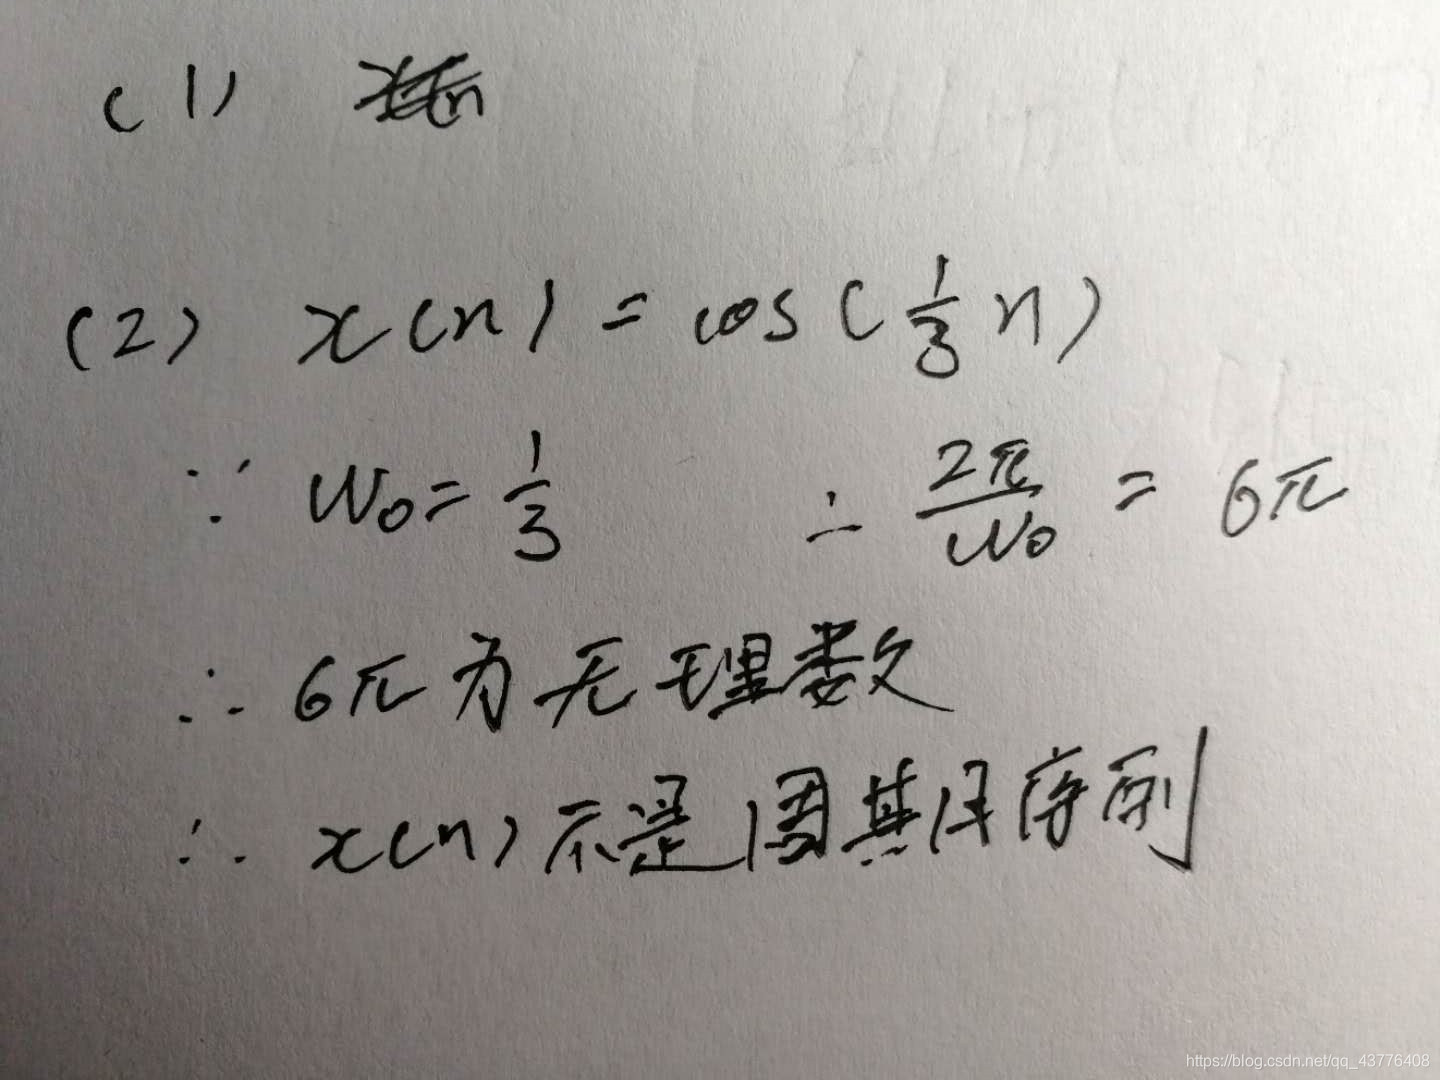 (1)
(2) x(n) = cos(1/3 n)
∵ W0 = 1/3 ∴ 2π/W0 = 6π
∴ 6π为无理数
∴ x(n)不是周期序列
https://blog.csdn.net/qq_43776408